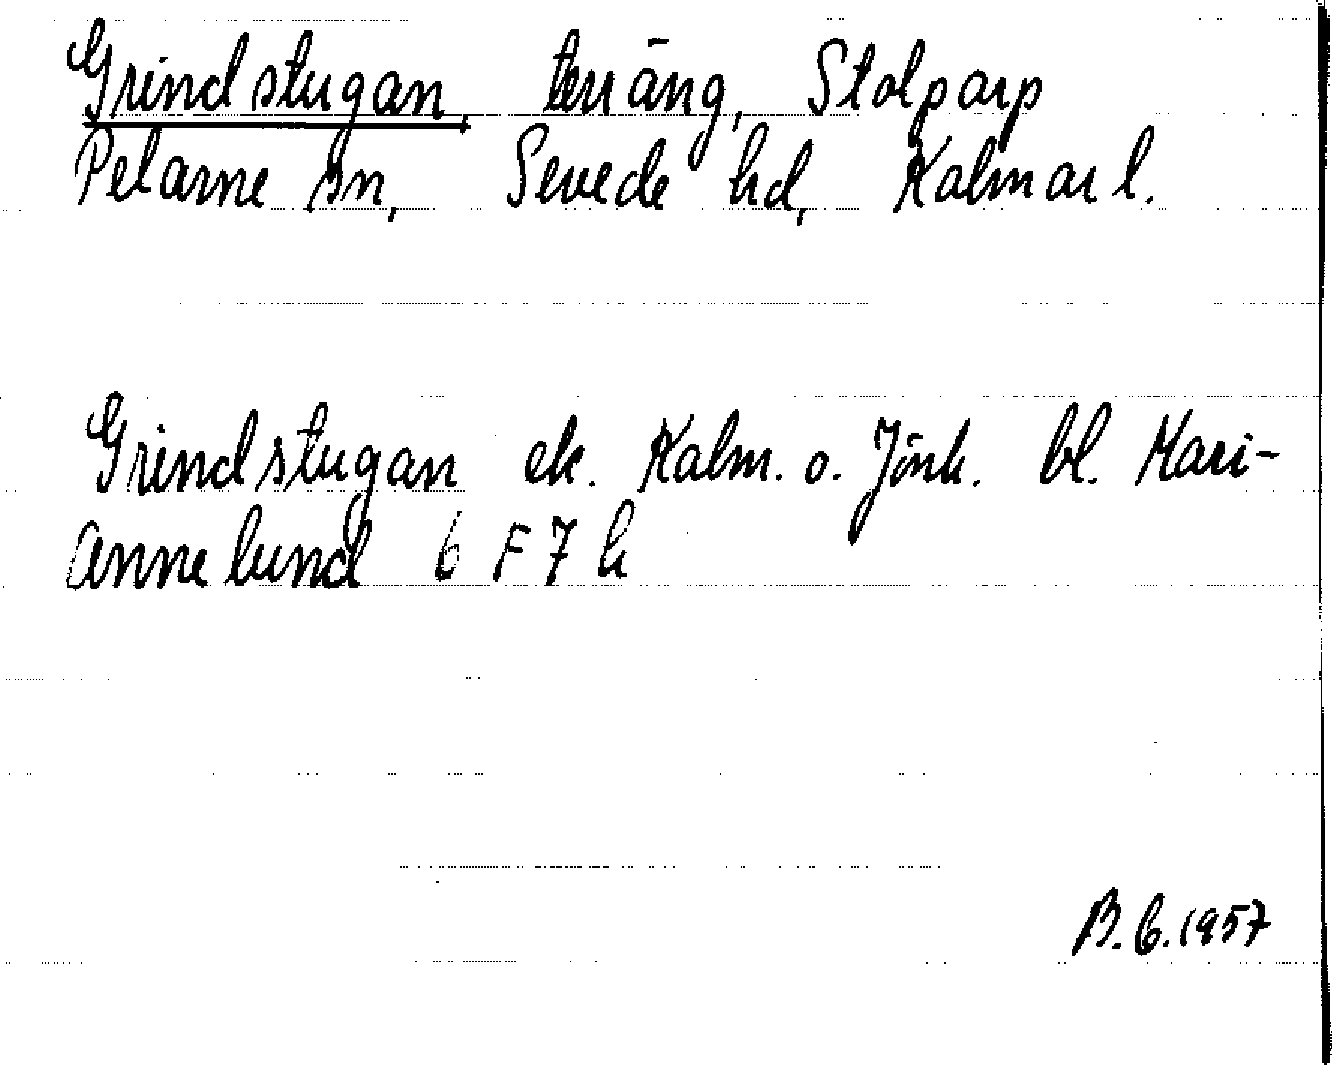 Grindstugan, terräng, Stolparp
Pelarne sn, Sevede hd, Kalmar l.
Grindstugan ek. Kalm. o. Jönk. bl. Mari-
annelund 6 F 7 h
B.G.1957